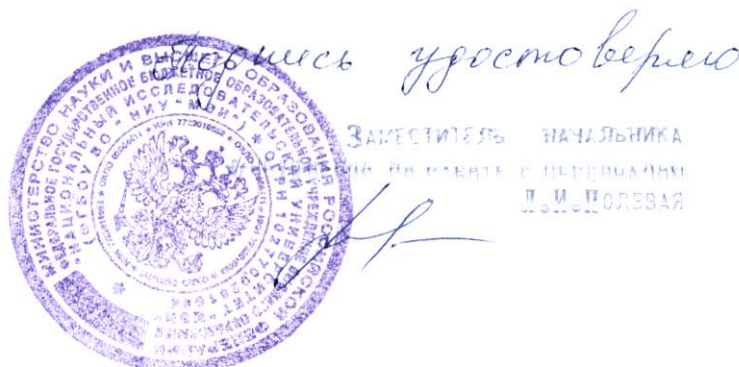 Подпись удостоверяю
ЗАМЕСТИТЕЛЬ НАЧАЛЬНИКА
ПО РАБОТЕ С ПЕРСОНАЛОМ
Л.И.ПОЛЕВАЯ
МИНИСТЕРСТВО НАУКИ И ВЫСШЕГО ОБРАЗОВАНИЯ РОССИЙСКОЙ ФЕДЕРАЦИИ
ФЕДЕРАЛЬНОЕ ГОСУДАРСТВЕННОЕ БЮДЖЕТНОЕ ОБРАЗОВАТЕЛЬНОЕ УЧРЕЖДЕНИЕ ВЫСШЕГО ОБРАЗОВАНИЯ
"НАЦИОНАЛЬНЫЙ ИССЛЕДОВАТЕЛЬСКИЙ УНИВЕРСИТЕТ "МЭИ"
(ФГБОУ ВО "НИУ "МЭИ") * ОГРН